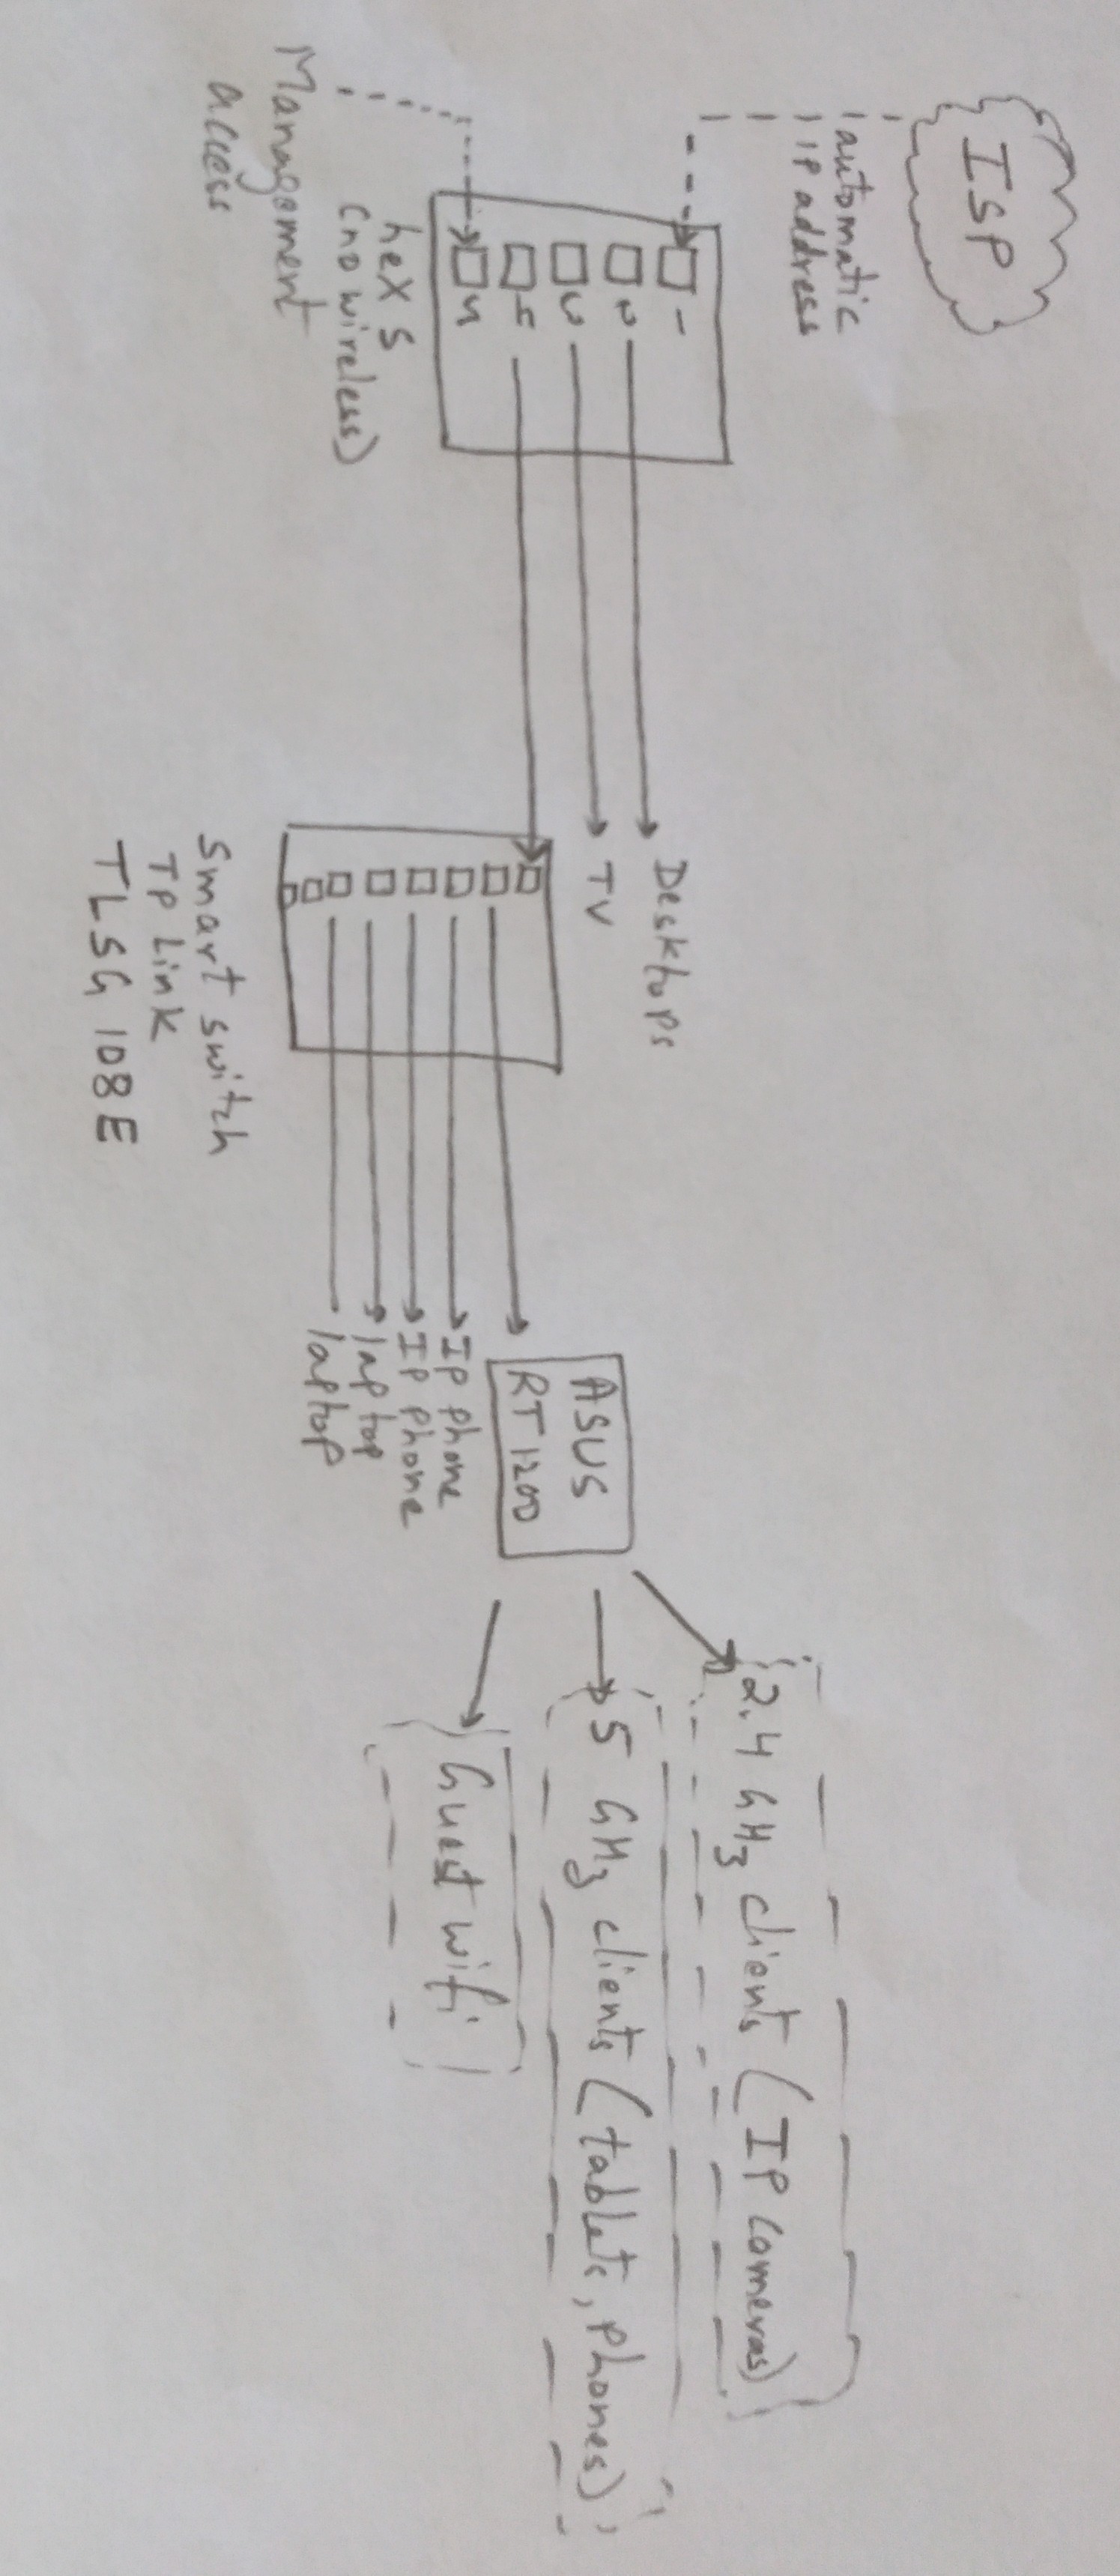 ISP
automatic
IP address
1
2
3
4
5
hex S
(no wireless)
Management
access
Desktops
TV
Smart switch
TP Link
TLSG 108E
ASUS
RT1200
IP phone
IP phone
laptop
laptop
2.4 GHz clients (IP cameras)
5 GHz clients (tablets, phones)
Guest wifi